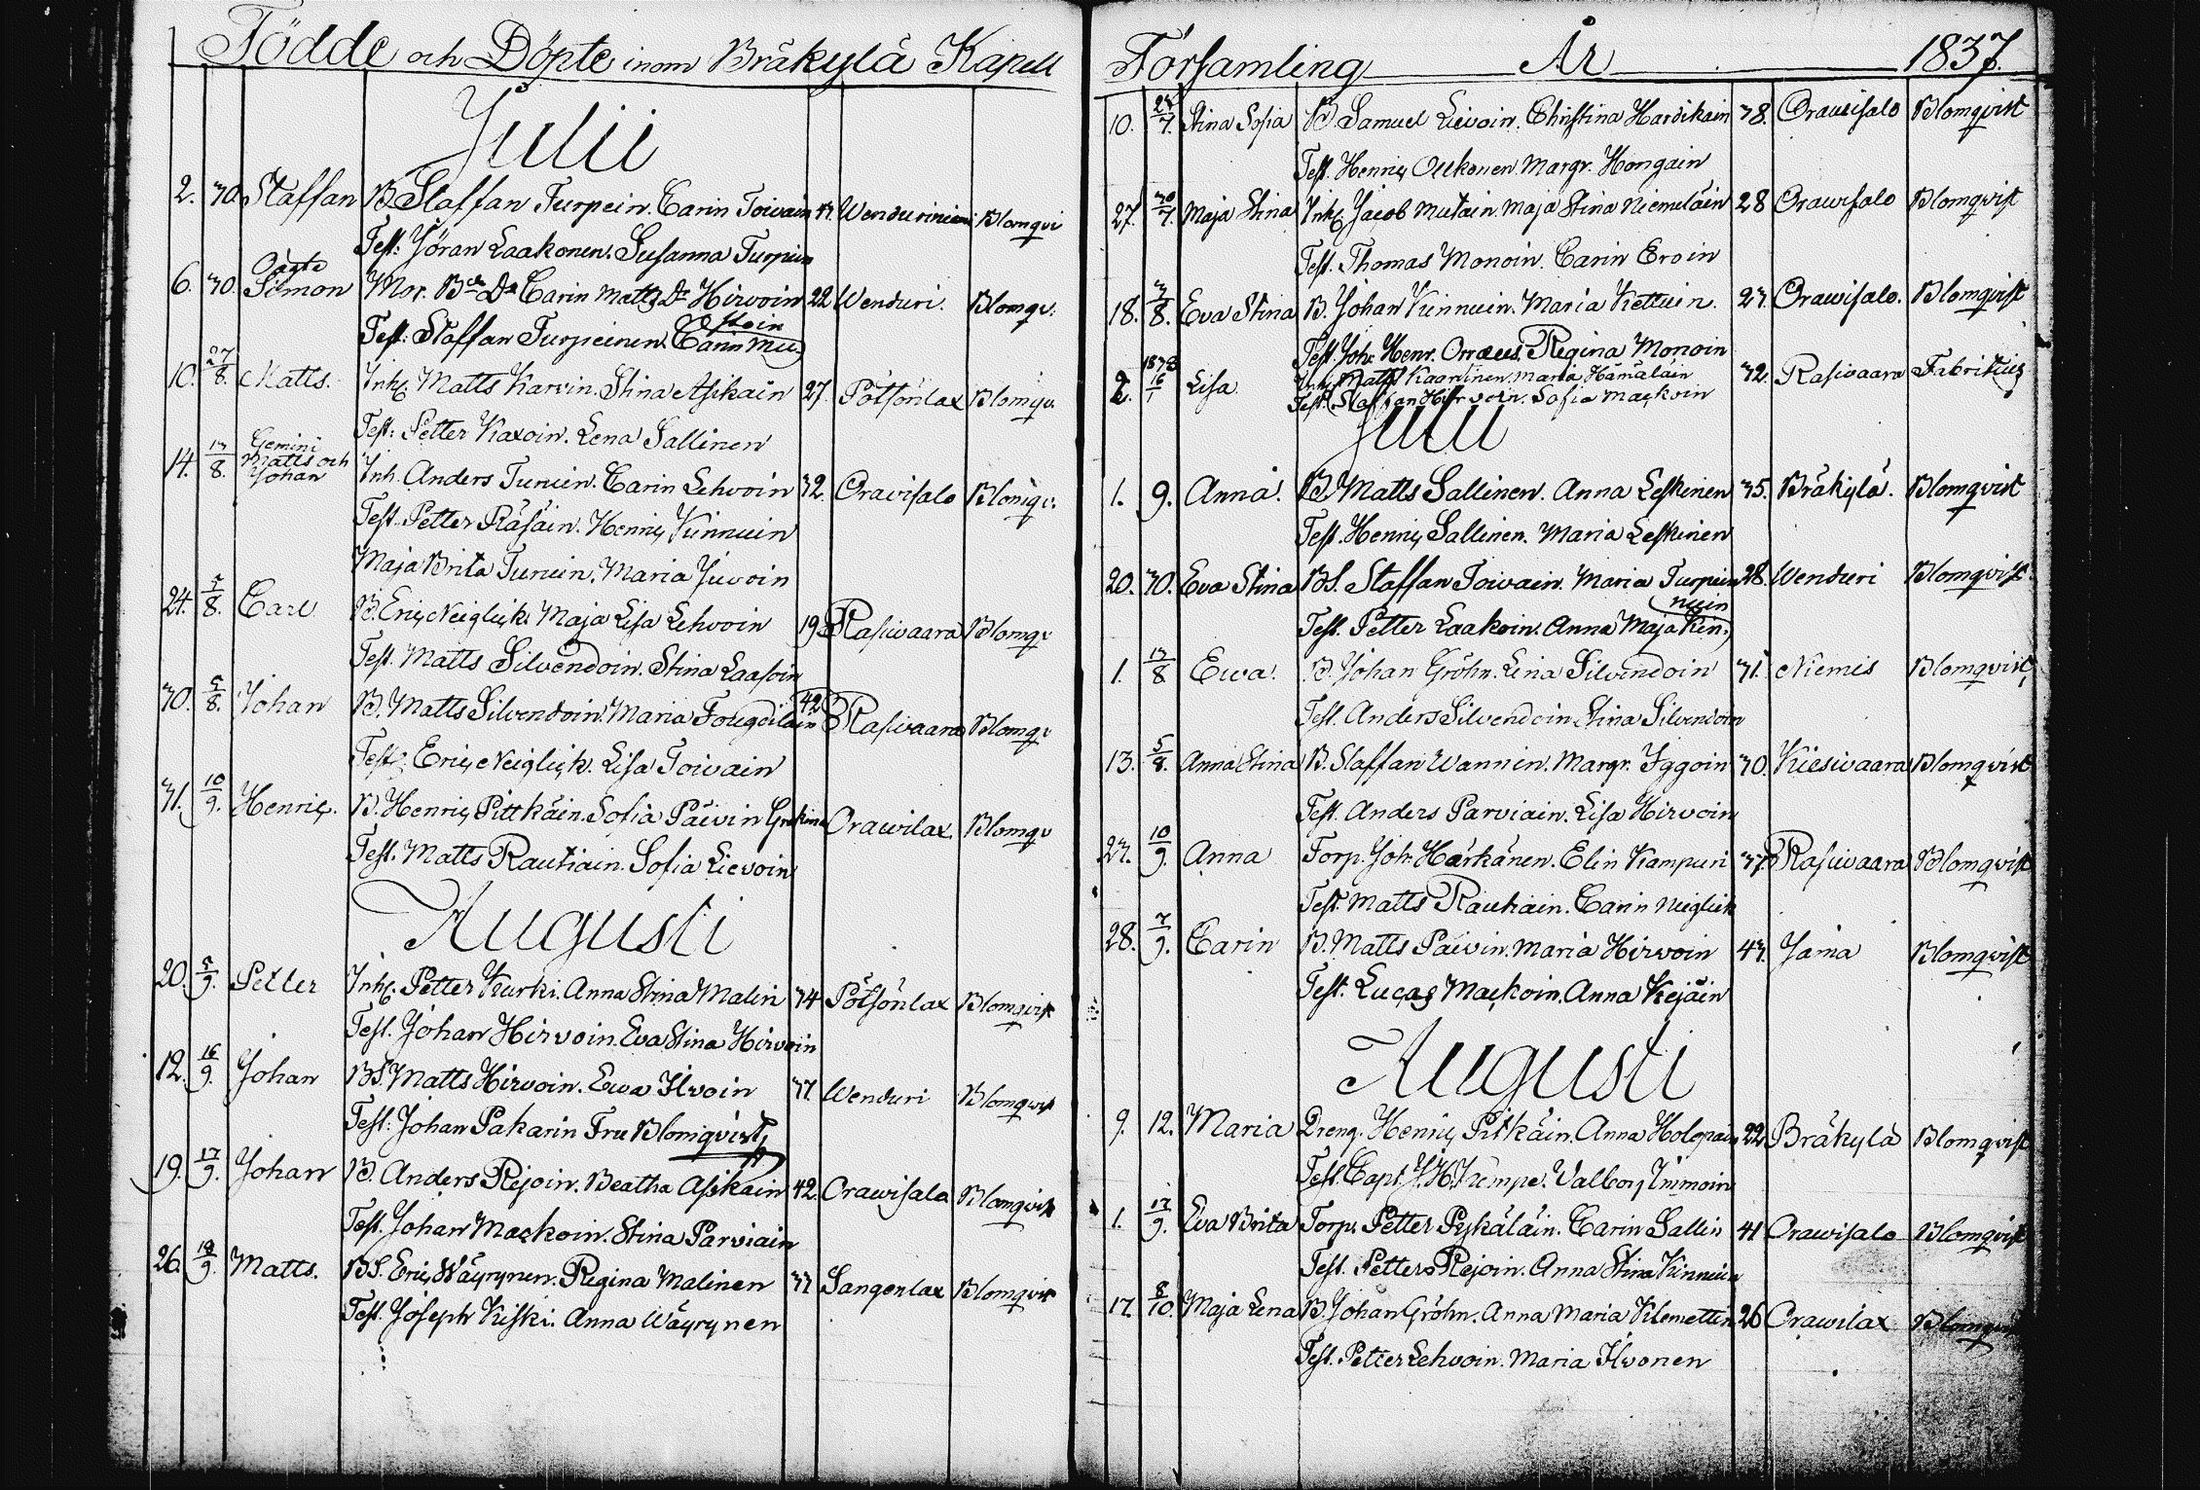 Födde och Döpte inom Bräkylä Kapell
Julii
2. 30. Staffan B. Staffan Turpein. Carin Toivain Wenduriniemi Blomqvi
Test: Jöran Laakonen. Susanna Turpein
6. 30. Oägta Simon Mor. Bde Dr Carin Matts Dr Hirvoin 22 Wenduri. Blomqv.
Test: Staffan Turpeinen. Carin Mustoin
10. 27/8. Matts. Inhs Matts Karvin. Stina Asikain 27. Pötsönlax Blomqv.
Test: Petter Karoin. Lena Sallinen
14. 13/8. Gemini Matts och Johan Inh. Anders Turuin. Carin Lehvoin 32. Oravisalo Blomqv.
Test. Petter Räsäin. Henric Kinnuin
Maja Brita Turuin. Maria Juvoin
24. 5/8. Carl B. Eric Neiglick. Maja Lisa Lehvoin 19 Rasivaara Blomqv
Test. Matts Silvendoin. Stina Laasoin
30. 5/8. Johan B. Matts Silvendoin. Maria 42 Rasivaara Blomqv
Test. Eric Neiglick. Lisa Toivain
31. 10/9. Henric. B. Henric Pittkäin. Sofia Päivin Orawilax. Blomqv
Test. Matts Rautiain. Sofia Lievoin
Augusti
20. 5/9. Petter Inhs. Petter Kurki. Anna Stina Malin 34 Pötsönlax Blomqvist
Test. Johan Hirvoin. Eva Stina Hirvoin
12. 16/9. Johan BS. Matts Hirvoin. Ewa Ilvoin 37. Wenduri Blomqvist
Test: Johan Pakarin Fru Blomqvist
19. 17/9. Johan B. Anders Rejoin. Beatha Asikain 42. Orawisalo Blomqvist
Test. Johan Mackoin. Stina Parviain
26. 19/9. Matts. BS. Eric Wäyrynen. Regina Malinen 33 Sangenlax Blomqvis
Test. Joseph Kiski. Anna Wäyrynen
Församling År 1837.
10. 23/7. Stina Sofia B. Samuel Lievoin. Christina Hardikain 38. Orawisalo Blomqvist
Test. Henric Outkonen Margr. Hongain
27. 30/7. Maja Stina Inhs Jacob Mutain. Maja Stina Niemiläin 28 Orawisalo Blomqvist
Test. Thomas Monoin. Carin Eroin
18. 3/8. Eva Stina B. Johan Kinnuin. Maria Kettuin. 23. Orawisalo. Blomqvist
Test. Joh. Henr. Orraeus. Regina Monoin
2. 1838 16/1 Lisa. Inhs Matts Kaartinen. Maria Hämäläin 32. Rasivaara Fabritius
Test. Staffan Hirvoin. Sofia Mackoin
Julii
1. 9. Anna. B. Matts Sallinen. Anna Leskinen 35. Bräkylä. Blomqvist
Test. Henric Sallinen. Maria Leskinen
20. 30. Eva Stina BS. Staffan Toivain. Maria Turpein 28. Wenduri Blomqvist.
Test. Petter Laakoin. Anna Maja Kinnuin
1. 13/8 Ewa. B. Johan Gröhn. Lena Silvendoin 31. Niemis Blomqvist,
Test. Anders Silvendoin Stina Silvendoin
13. 5/8. Anna Stina B. Staffan Wannin. Margr. Iggoin 30. Kiesivaara Blomqvist
Test. Anders Parviain. Lisa Hirvoin
23. 10/9. Anna Torp. Joh. Härkänen. Elin Kampuri 37. Rasivaara Blomqvist
Test. Matts Rautiain. Carin Neiglick
28. 7/9. Carin B. Matts Päivin. Maria Hirvoin 43. Jama Blomqvist
Test. Lucas Mackoin. Anna Kejäin
Augusti
9. 12. Maria Dreng. Henric Pitkäin. Anna Holopain 22. Bräkylä Blomqvist
Test. Capt. J. H. Kumpe. Valborg Immoin
1. 17/9. Eva Brita Torp. Petter Pyskäläin. Carin Sallin 41 Orawisalo Blomqvist
Test. Petter Rejoin. Anna Stina Kinnuin
17. 8/10. Maja Lena B. Johan Gröhn. Anna Maria Klemettin 26 Orawilax Blomqvist
Test. Petter Lehvoin. Maria Ilvonen